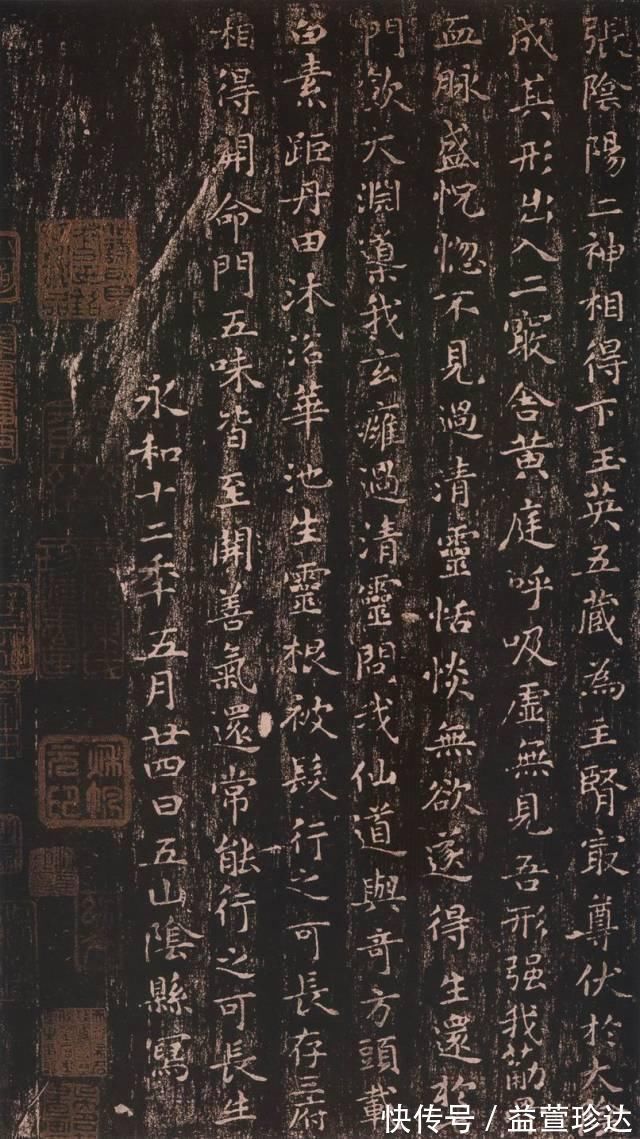 張陰陽二神相得下玉英五藏為主腎寂尊伏於大
成其形出入二竅舍黄庭呼吸虛無見吾形强我筋
血脉盛怳惚不見過清靈恬惔無欲遂得生還於
門飲大淵䆃我玄癰過清靈問我仙道與奇方頭載
白素距丹田沐浴華池生靈根被髮行之可長存二府
相得開命門五味皆至開善氣還常能行之可長生
永和十二年五月廿四日五山陰縣寫
快传号 / 益萱珍达